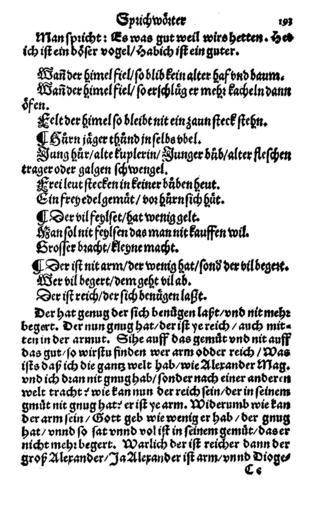 Sprichwörter 193
Man spricht: Es was gut weil wirs hetten. Het
ich ist ein böser vogel/ Hab ich ist ein guter.
Wañ der himel fiel/ so blib kein alter haf vnd baum.
Wañ der himel fiel/ so erschlüg er mehr kacheln dann
öfen.
Felt der himel so bleibt nit ein zaun steck stehn.
¶ Hürn jäger thünd jn selbs vbel.
Jung hůr/ alte kuplerin/ Junger bůb/ alter fleschen
trager oder galgen schwengel.
Frei leut stecken in keiner bůben heut.
Ein frey edel gemüt/ vor hůrn sich hüt.
¶ Der vil feylset/ hat wenig gelt.
Man sol nit feylsen das man nit kauffen wil.
Grosser bracht/ kleyne macht.
¶ Der ist nit arm/ der wenig hat/ sonď der vil begert.
Wer vil begert/ dem geht vil ab.
Der ist reich/ der sich benügen laßt.
Der hat genug der sich benügen laßt/ vnd nit mehr
begert. Der nun gnug hat/ der ist ye reich/ auch mit-
ten in der armut. Sihe auff das gemüt vnd nit auff
das gut/ so wirstu finden wer arm odder reich/ Was
ists daß ich die gantz welt hab/ wie Alexander Mag.
vnd ich dran nit gnug hab/ sonder nach einer anderen
welt tracht: wie kan nun der reich sein/ der in seinem
gmüt nit gnug hat: er ist ye arm. Widerumb wie kan
der arm sein/ Gott geb wie wenig er hab/ der gnug
hat/ vnnd so sat vnnd vol ist in seinem gmüt/ das er
nicht mehr begert. Warlich der ist reicher dann der
groß Alexander/ Ja Alexander ist arm/ vnnd Dioge-
C c